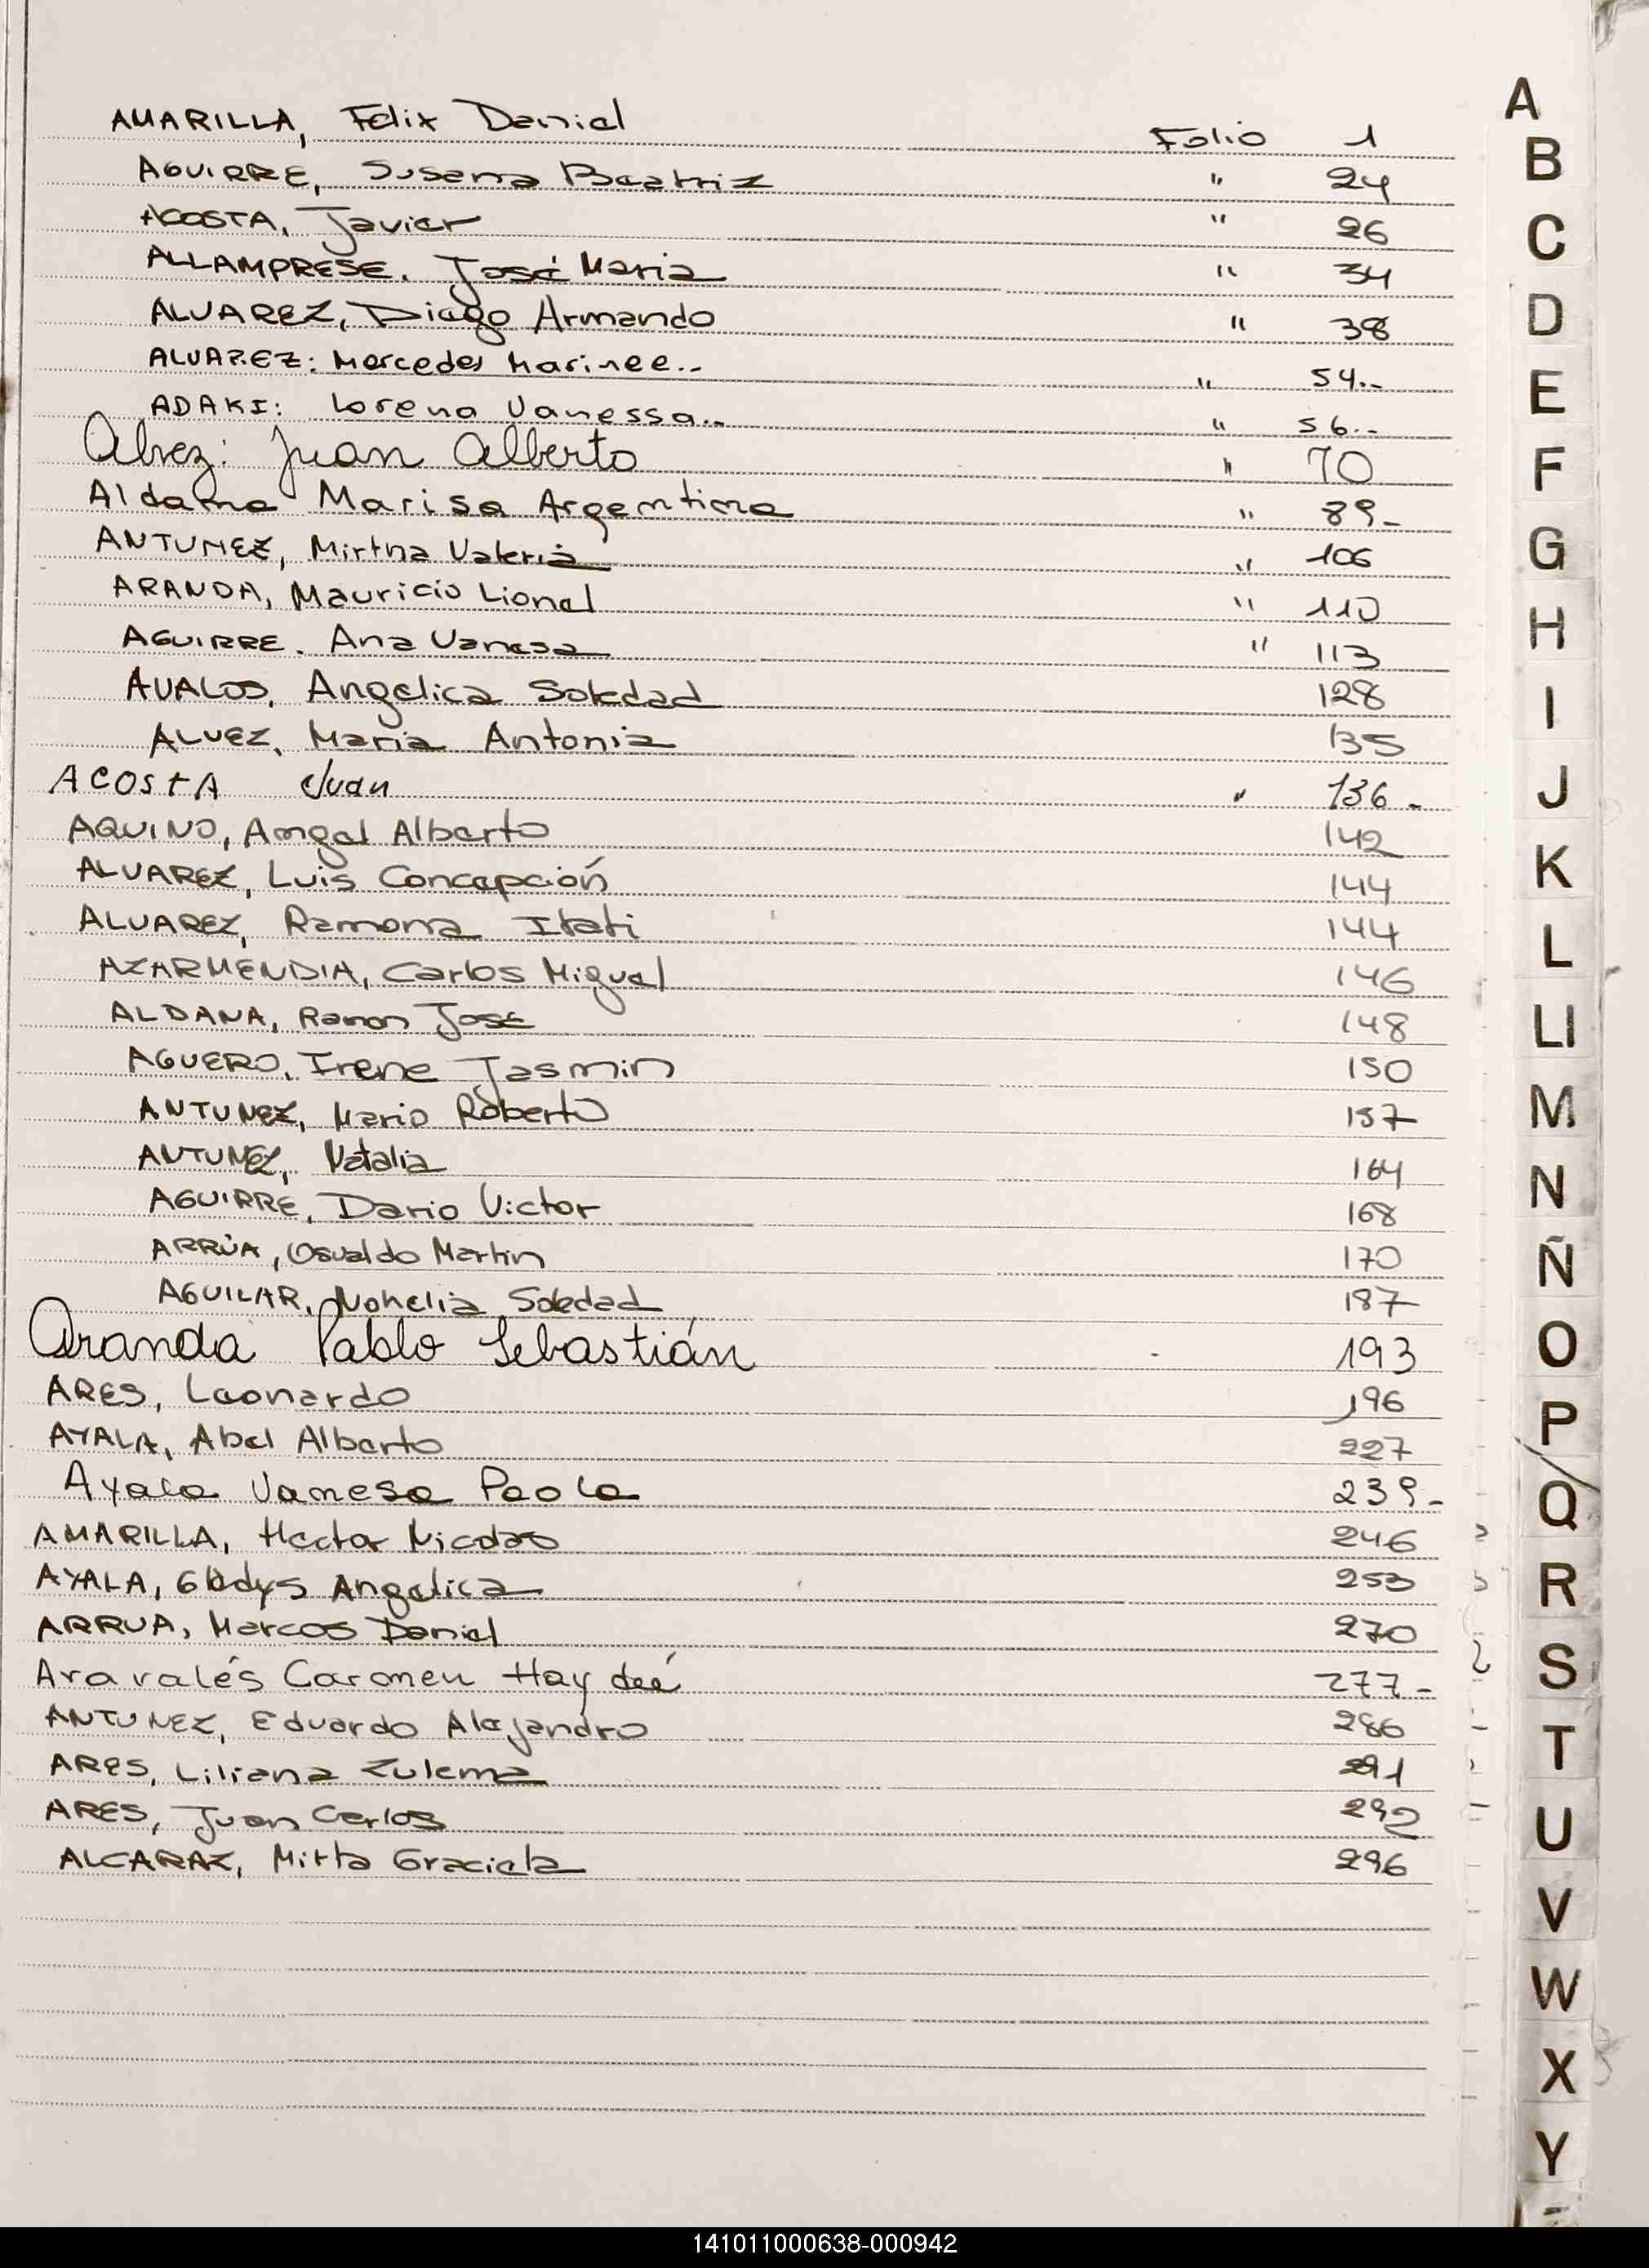 AMARILLA, Felix Daniel Folio 1
AGUIRRE, Susana Beatriz " 24
ACOSTA, Javier " 26
ALLAMPRESE. José Maria " 34
ALVAREZ, Diego Armando " 38
ALVAREZ: Mercedes Marinee.. " 54.-
ADAKI: Lorena Vanessa.. " 56.-
Alvez: Juan Alberto " 70
Aldama Marisa Argentina " 89-
ANTUNEZ, Mirtha Valeria " 106
ARANDA, Mauricio Lionel " 110
AGUIRRE. Ana Vanesa " 113
AVALOS, Angelica Soledad 128
ALVEZ, Maria Antonia 135
ACOSTA Juan " 136-
AQUINO, Angel Alberto 142
ALVAREZ, Luis Concepción 144
ALVAREZ, Ramona Itati 144
AZARMENDIA, Carlos Miguel 146
ALDANA, Ramon José 148
AGUERO, Irene Jasmin 150
ANTUNEZ, Mario Roberto 157
ANTUNEZ, Natalia 164
AGUIRRE, Dario Victor 168
ARRÚA, Osvaldo Martin 170
AGUILAR, Nohelia Soledad 187
Aranda Pablo Sebastián 193
ARES, Leonardo 196
AYALA, Abel Alberto 227
Ayala Vanesa Paola 239-
AMARILLA, Hector Nicolas 246
AYALA, Gladys Angelica 253
ARRUA, Marcos Daniel 270
Aravalés Carmen Haydeé 277-
ANTUNEZ, Eduardo Alejandro 286
ARES, Liliana Zulema 291
ARES, Juan Carlos 292
ALCARAZ, Mirta Graciela 296
A
B
C
D
E
F
G
H
I
J
K
L
Ll
M
N
Ñ
O
P/Q
R
S
T
U
V
W
X
Y
141011000638-000942